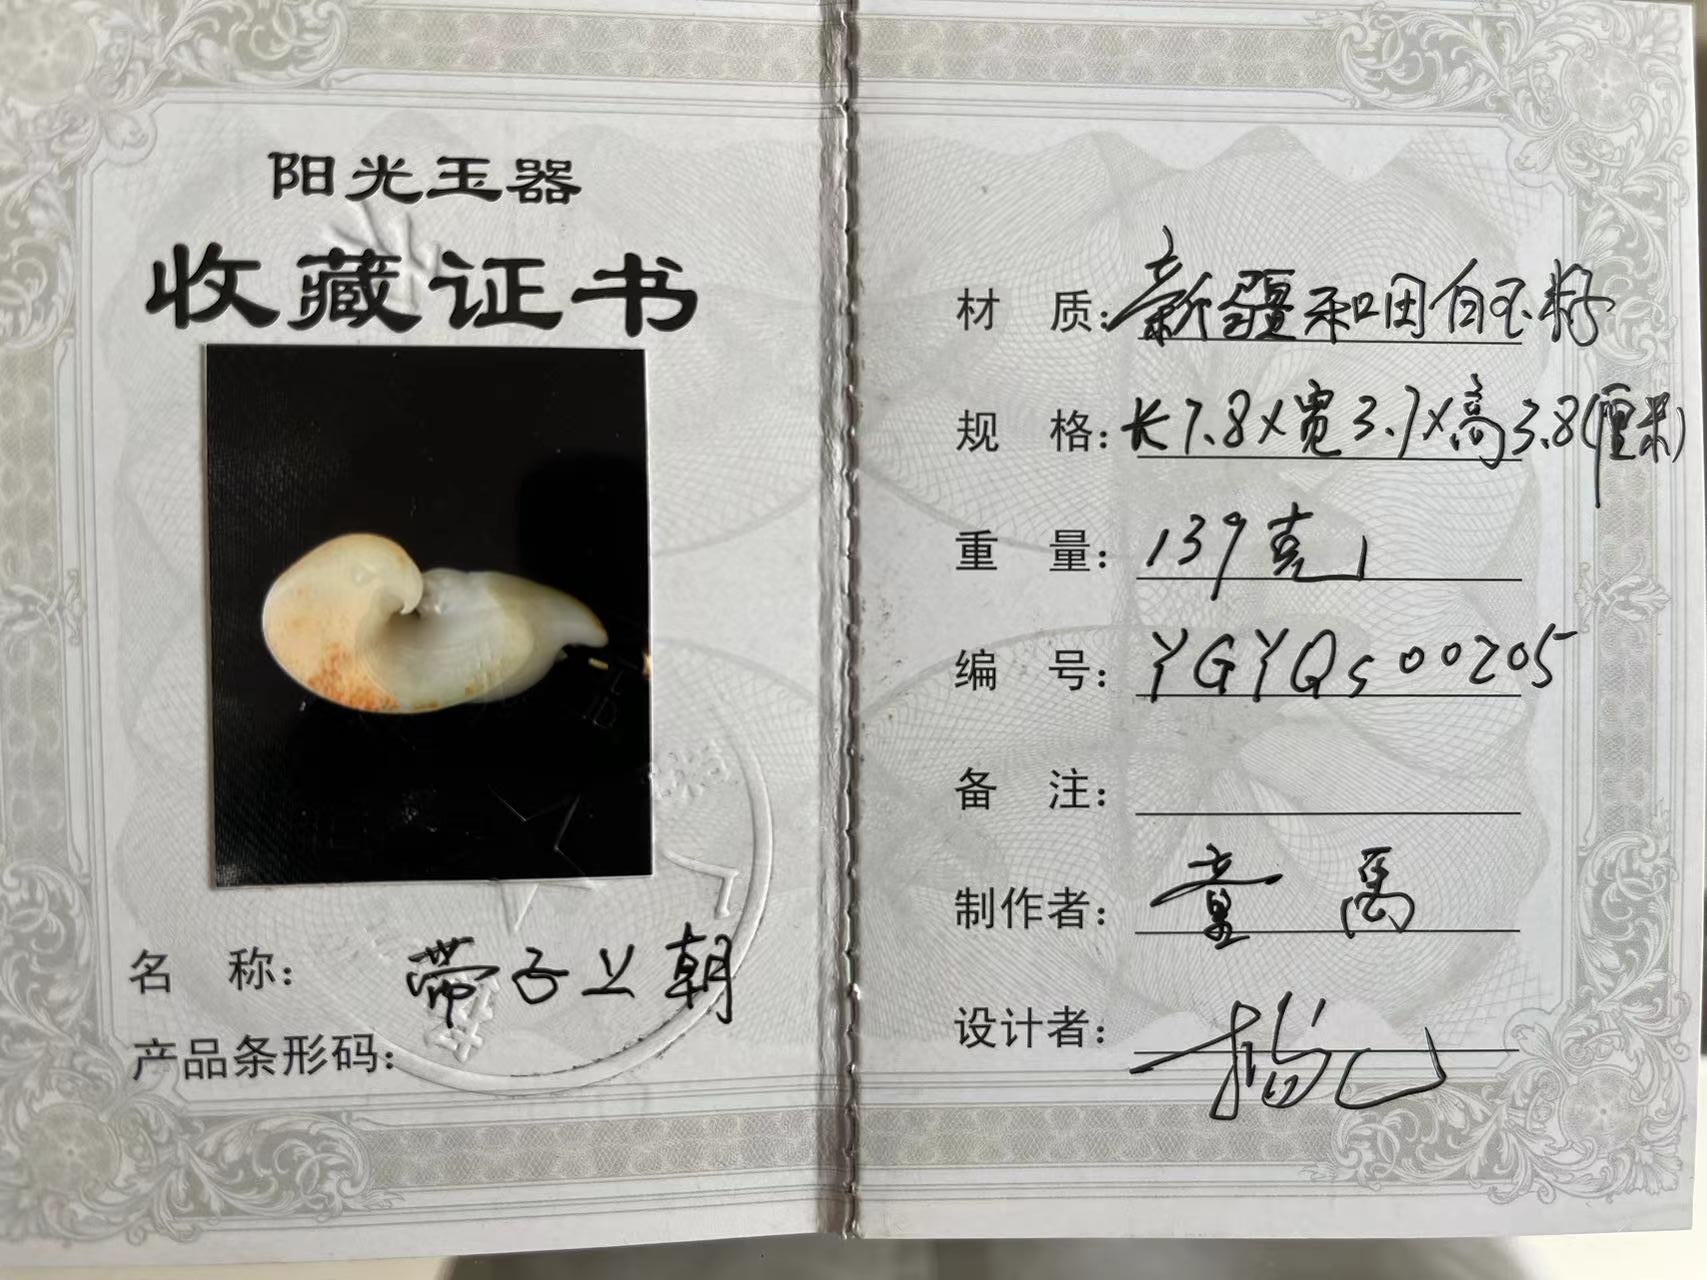 阳光玉器
收藏证书
名 称: 带子上朝
产品条形码:
材 质: 新疆和田白玉籽
规 格: 长7.8×宽3.7×高3.8(厘米)
重 量: 139克
编 号: YGYQs00205
备 注:
制作者: 童禹
设计者: